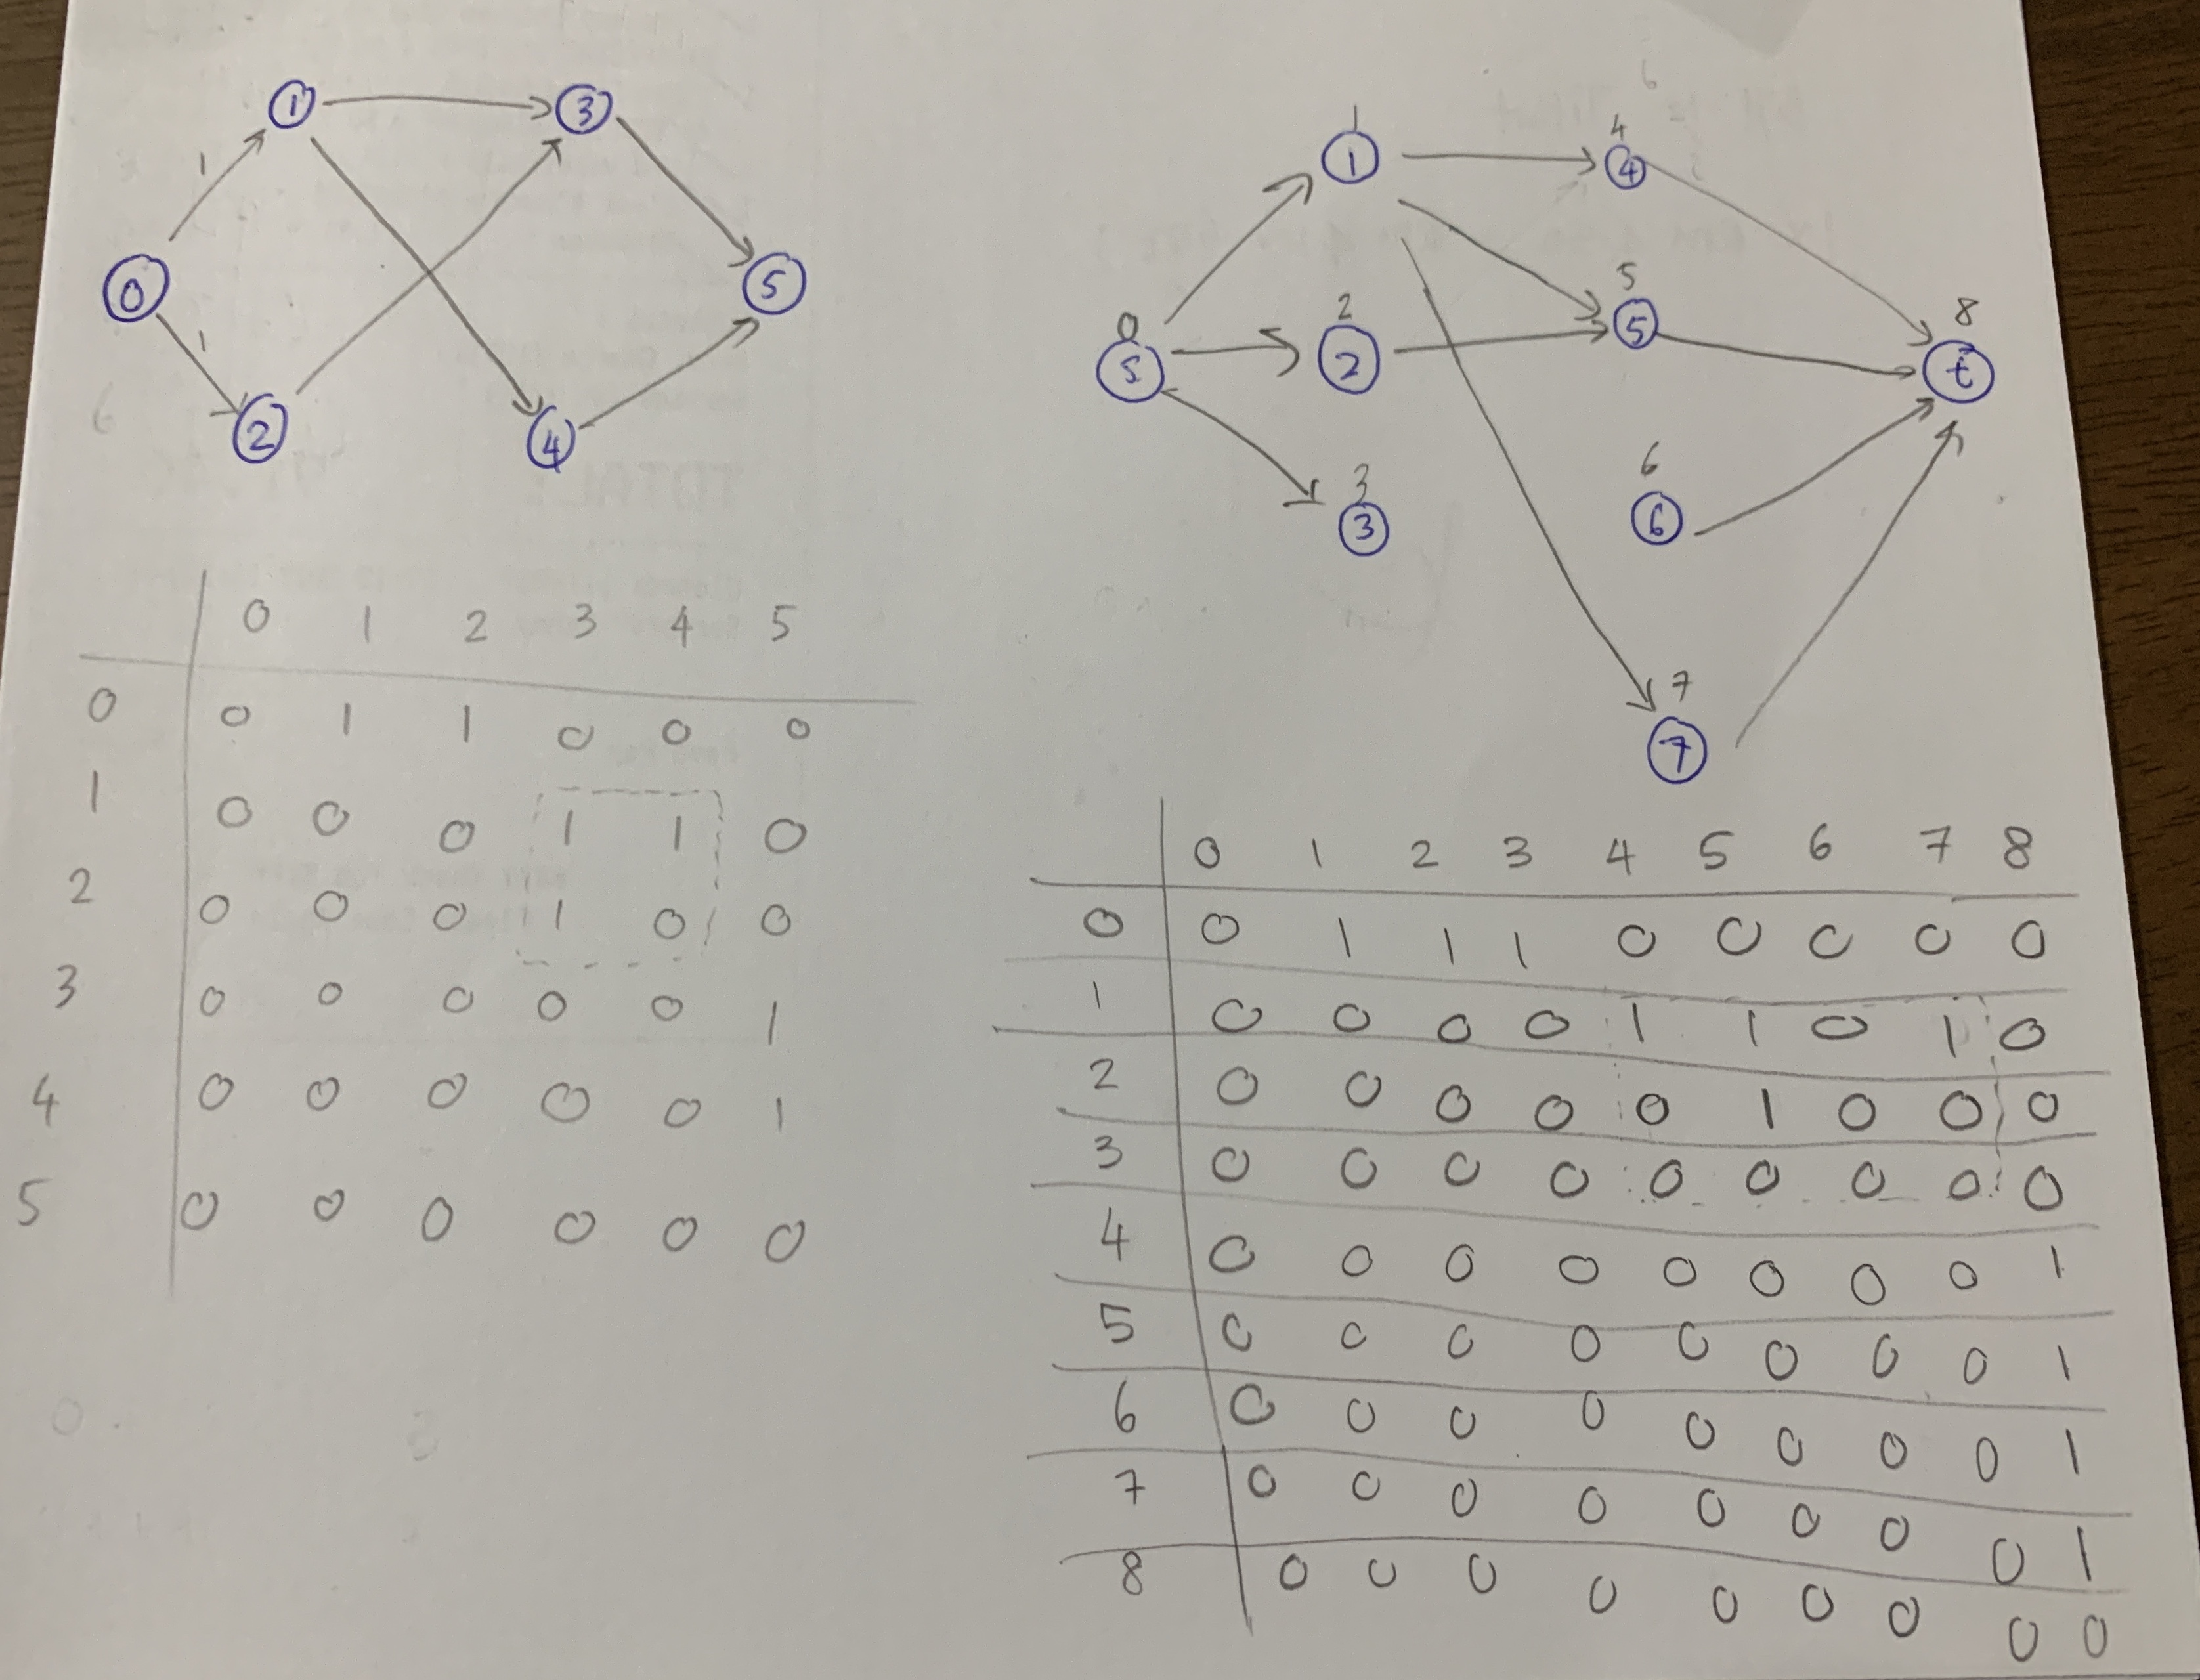 1 3
1
0 5
1
2 4
0 1 2 3 4 5
0 0 1 1 0 0 0
1 0 0 0 1 1 0
2 0 0 0 1 0 0
3 0 0 0 0 0 1
4 0 0 0 0 0 1
5 0 0 0 0 0 0
1 4
1 4
2 5
2 5
0 8
s t
3 6
3 6
7
7
0 1 2 3 4 5 6 7 8
0 0 1 1 1 0 0 0 0 0
1 0 0 0 0 1 1 0 1 0
2 0 0 0 0 0 1 0 0 0
3 0 0 0 0 0 0 0 0 0
4 0 0 0 0 0 0 0 0 1
5 0 0 0 0 0 0 0 0 1
6 0 0 0 0 0 0 0 0 1
7 0 0 0 0 0 0 0 0 1
8 0 0 0 0 0 0 0 0 0